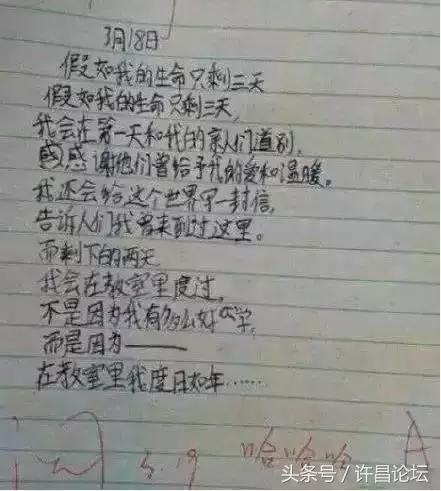 3月18日
假如我的生命只剩三天
假如我的生命只剩三天,
我会在第一天和我的亲人们道别,
感感谢他们曾给予我的爱和温暖。
我还会给这个世界写一封信,
告诉人们我曾来到过这里。
而剩下的两天
我会在教室里度过,
不是因为我有多么好学,
而是因为——
在教室里我度日如年……
阅 3.19 哈哈哈 A
头条号/许昌论坛